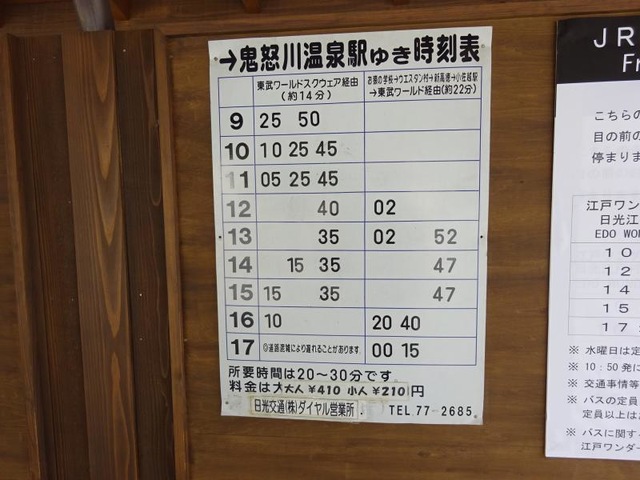 →鬼怒川温泉駅ゆき時刻表
東武ワールドスクウェア経由
(約14分)
お猿の学校→ウエスタン村→新高徳→小佐越駅
→東武ワールド経由(約22分)
9 25 50
10 10 25 45
11 05 25 45
12 40 02
13 35 02 52
14 15 35 47
15 15 35 47
16 10 20 40
17 ◎道路混雑により遅れることがあります 00 15
所要時間は20〜30分です。
料金は大大人 ¥410 小人 ¥210円
日光交通(株)ダイヤル営業所 TEL.77-2685.
JR
Fr
こちらの
目の前の
停まりま
江戸ワン
日光江
EDO WO
10
12
14
15
17
※ 水曜日は定
※ 10:50発に
※ 交通事情等
※ バスの定員
定員以上は
※ バスに関す
江戸ワンダー